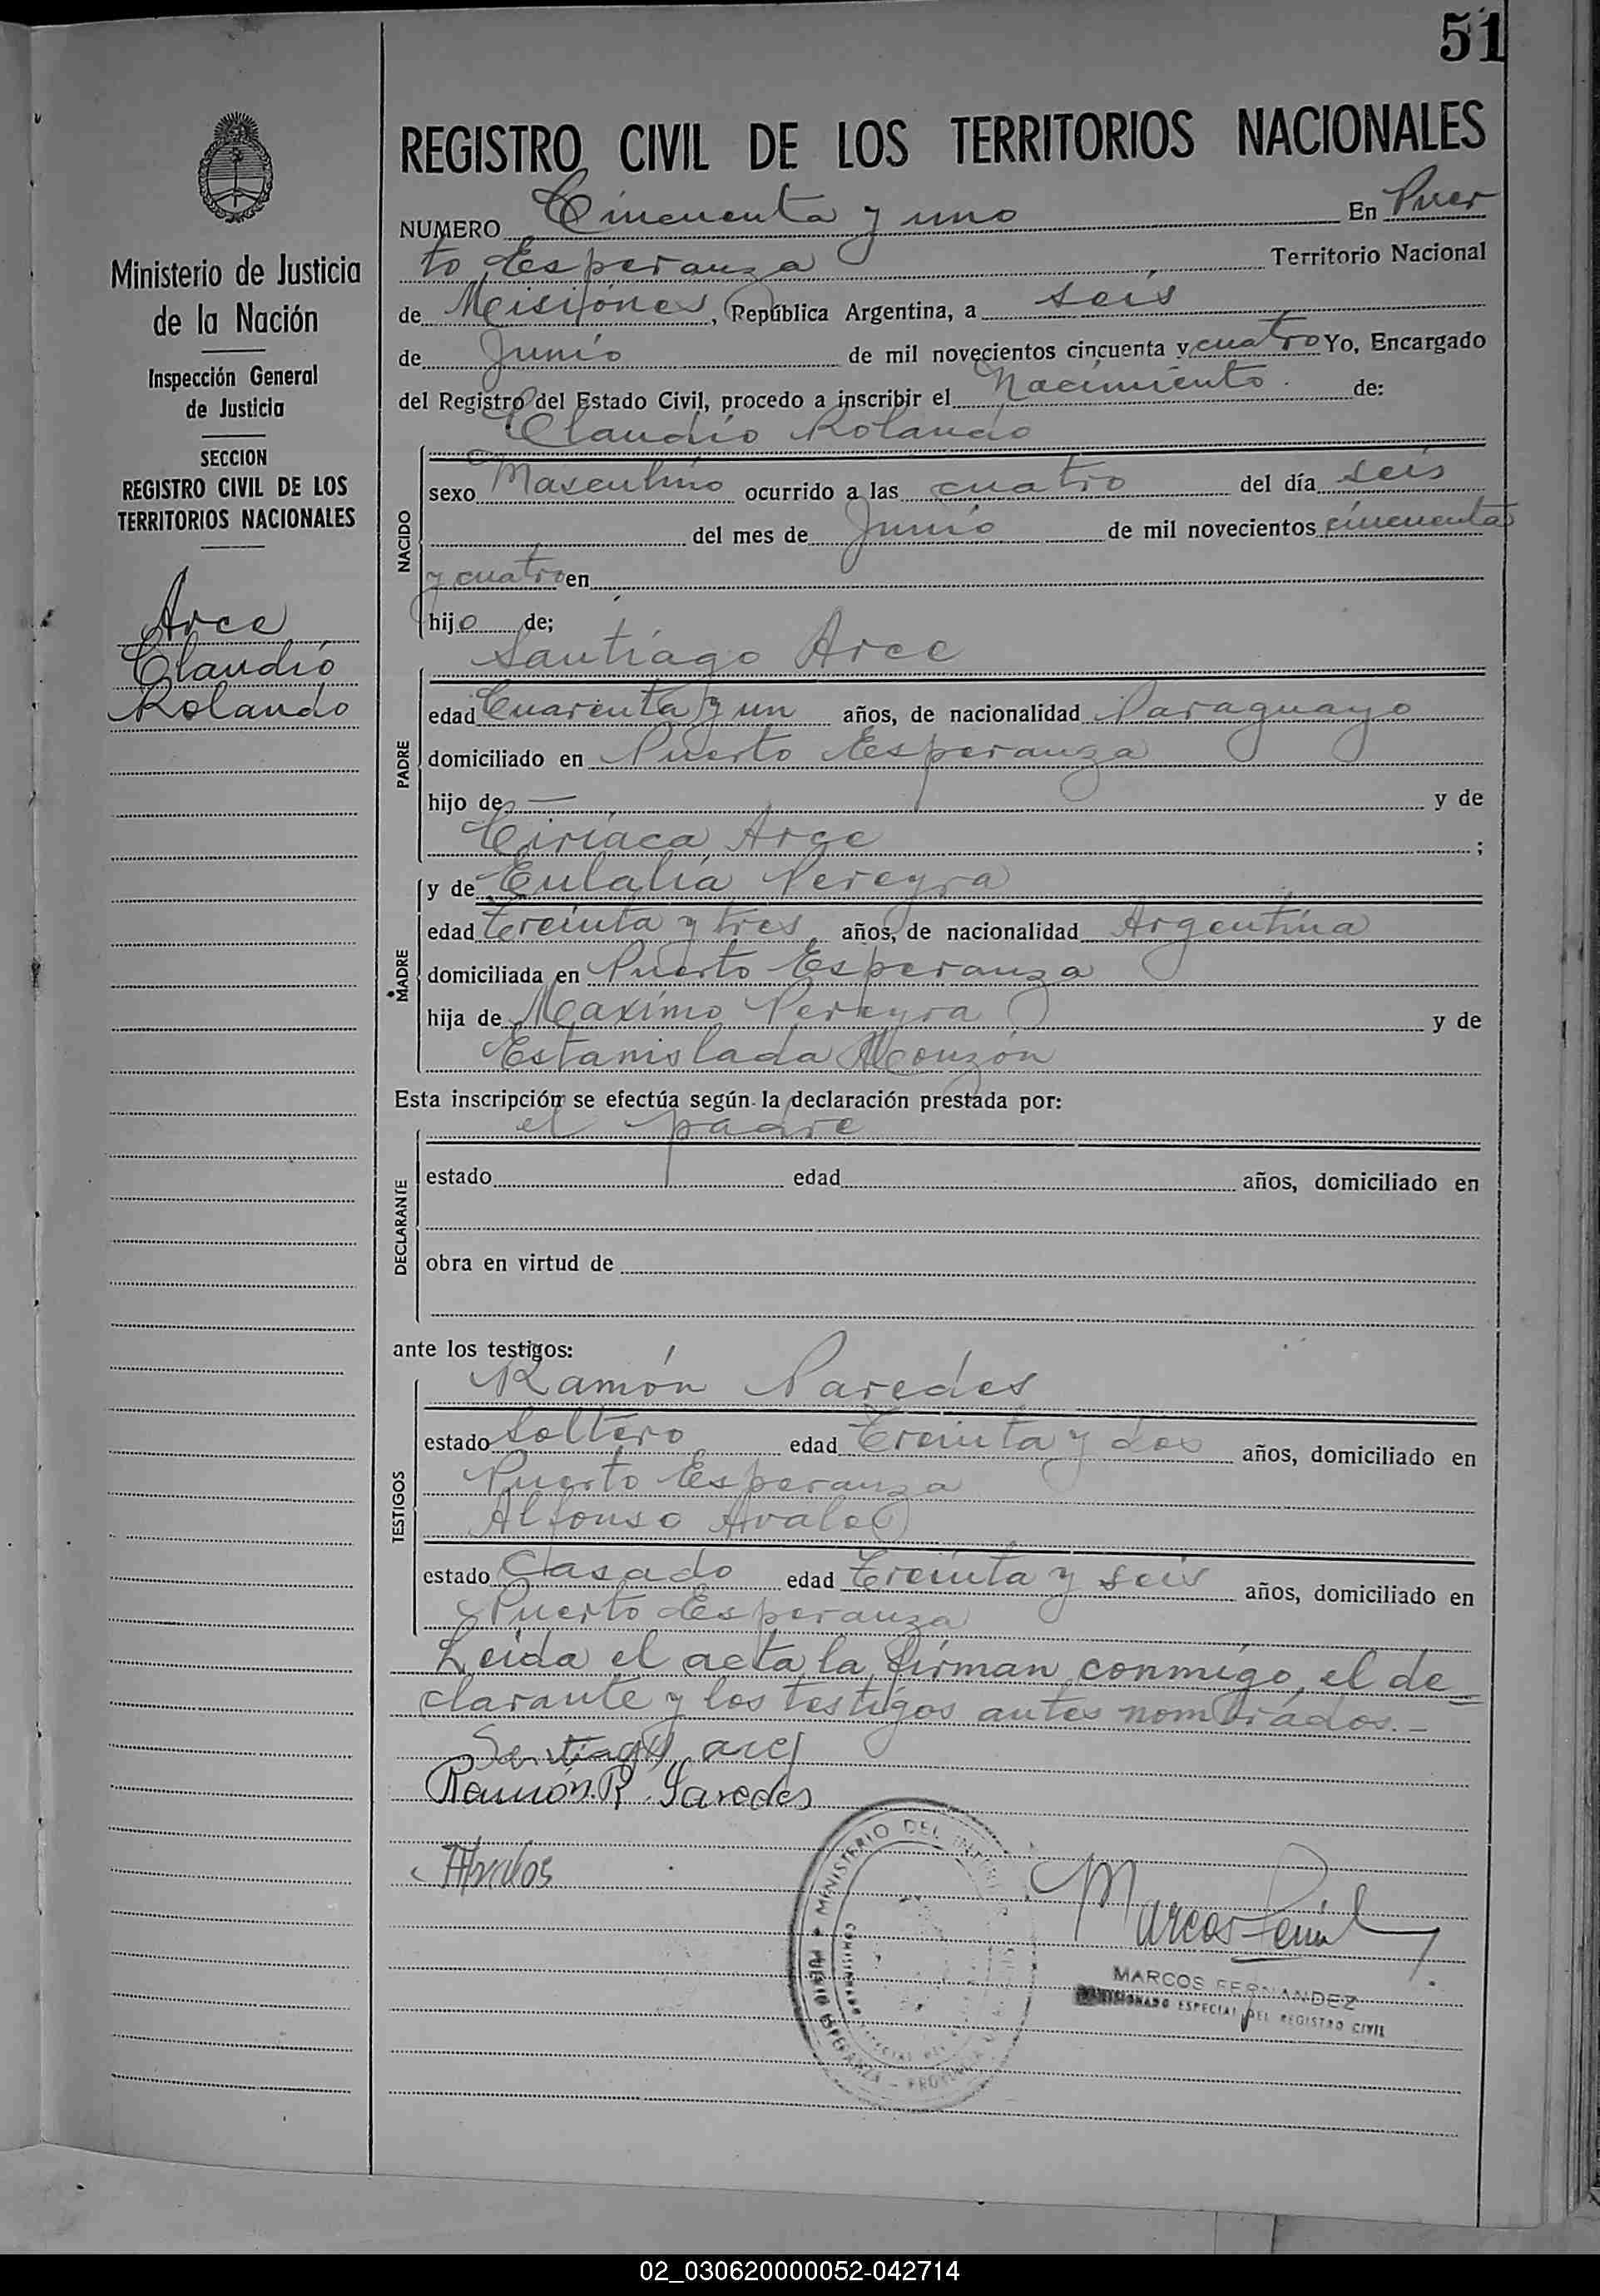 51
REGISTRO CIVIL DE LOS TERRITORIOS NACIONALES
NUMERO Cincuenta y uno En Puer
to Esperanza Territorio Nacional
de Misiones, República Argentina, a seis
de Junio de mil novecientos cincuenta y cuatro Yo, Encargado
del Registro del Estado Civil, procedo a inscribir el Nacimiento. de:
Claudio Rolando
NACIDO
sexo Masculino ocurrido a las cuatro del día seis
del mes de Junio de mil novecientos cincuenta
y cuatro en
hijo de;
Santiago Arce
PADRE
edad Cuarenta y un años, de nacionalidad Paraguayo
domiciliado en Puerto Esperanza
hijo de — y de
Ciriaca Arce ;
y de Eulalia Pereyra
MADRE
edad treinta y tres años, de nacionalidad Argentina
domiciliada en Puerto Esperanza
hija de Maximo Pereyra y de
Estanislada Monzón
Esta inscripción se efectúa según la declaración prestada por:
el padre
DECLARANTE
estado edad años, domiciliado en
obra en virtud de
ante los testigos:
Ramón Paredes
TESTIGOS
estado Soltero edad Treinta y dos años, domiciliado en
Puerto Esperanza
Alfonso Avalos
estado Casado edad Treinta y seis años, domiciliado en
Puerto Esperanza
Leida el acta la firman conmigo, el de=
clarante y los testigos antes nombrados.-
Santiago arce
Ramón R. Paredes
Avalos
MINISTERIO DEL
PUERTO ESPERANZA - PROVINCIA
MARCOS FERNANDEZ
COMISIONADO ESPECIAL DEL REGISTRO CIVIL
Ministerio de Justicia
de la Nación
Inspección General
de Justicia
SECCION
REGISTRO CIVIL DE LOS
TERRITORIOS NACIONALES
Arce
Claudio
Rolando
02_030620000052-042714